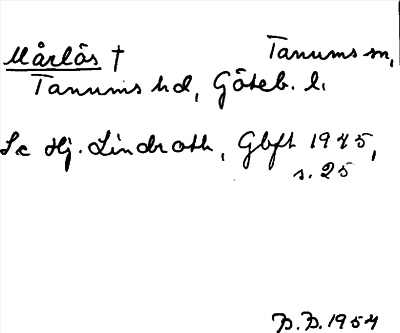 Mårlös † Tanums sn,
Tanums hd, Göteb. l.
Se Hj. Lindroth, Gbft 1945,
s. 25
B.B. 1954